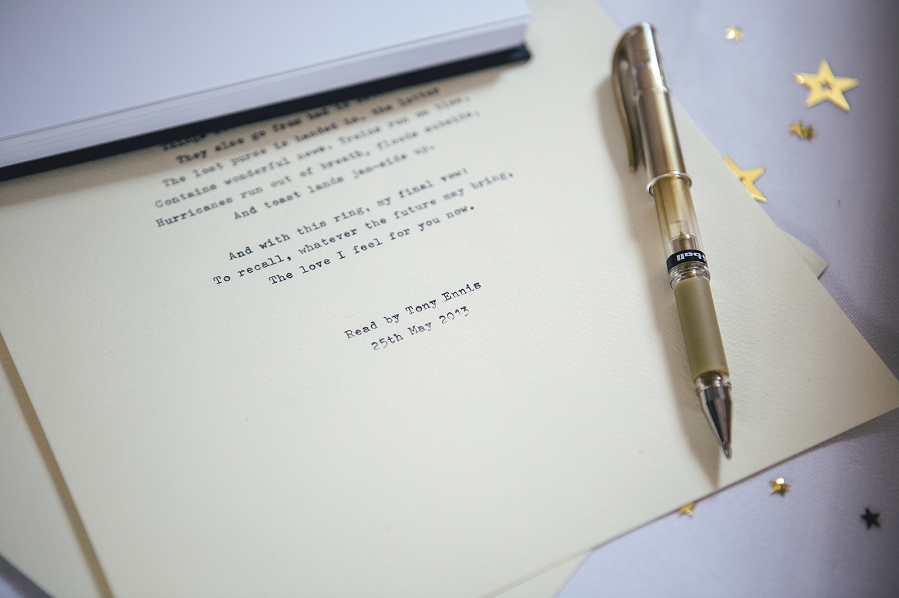 They also go from bad to
The lost purse is handed in, the letter
Contains wonderful news. Trains run on time,
Hurricanes run out of breath, floods subside,
And toast lands jam-side up.
And with this ring, my final vow:
To recall, whatever the future may bring,
The love I feel for you now.
Read by Tony Ennis
25th May 2013
ball